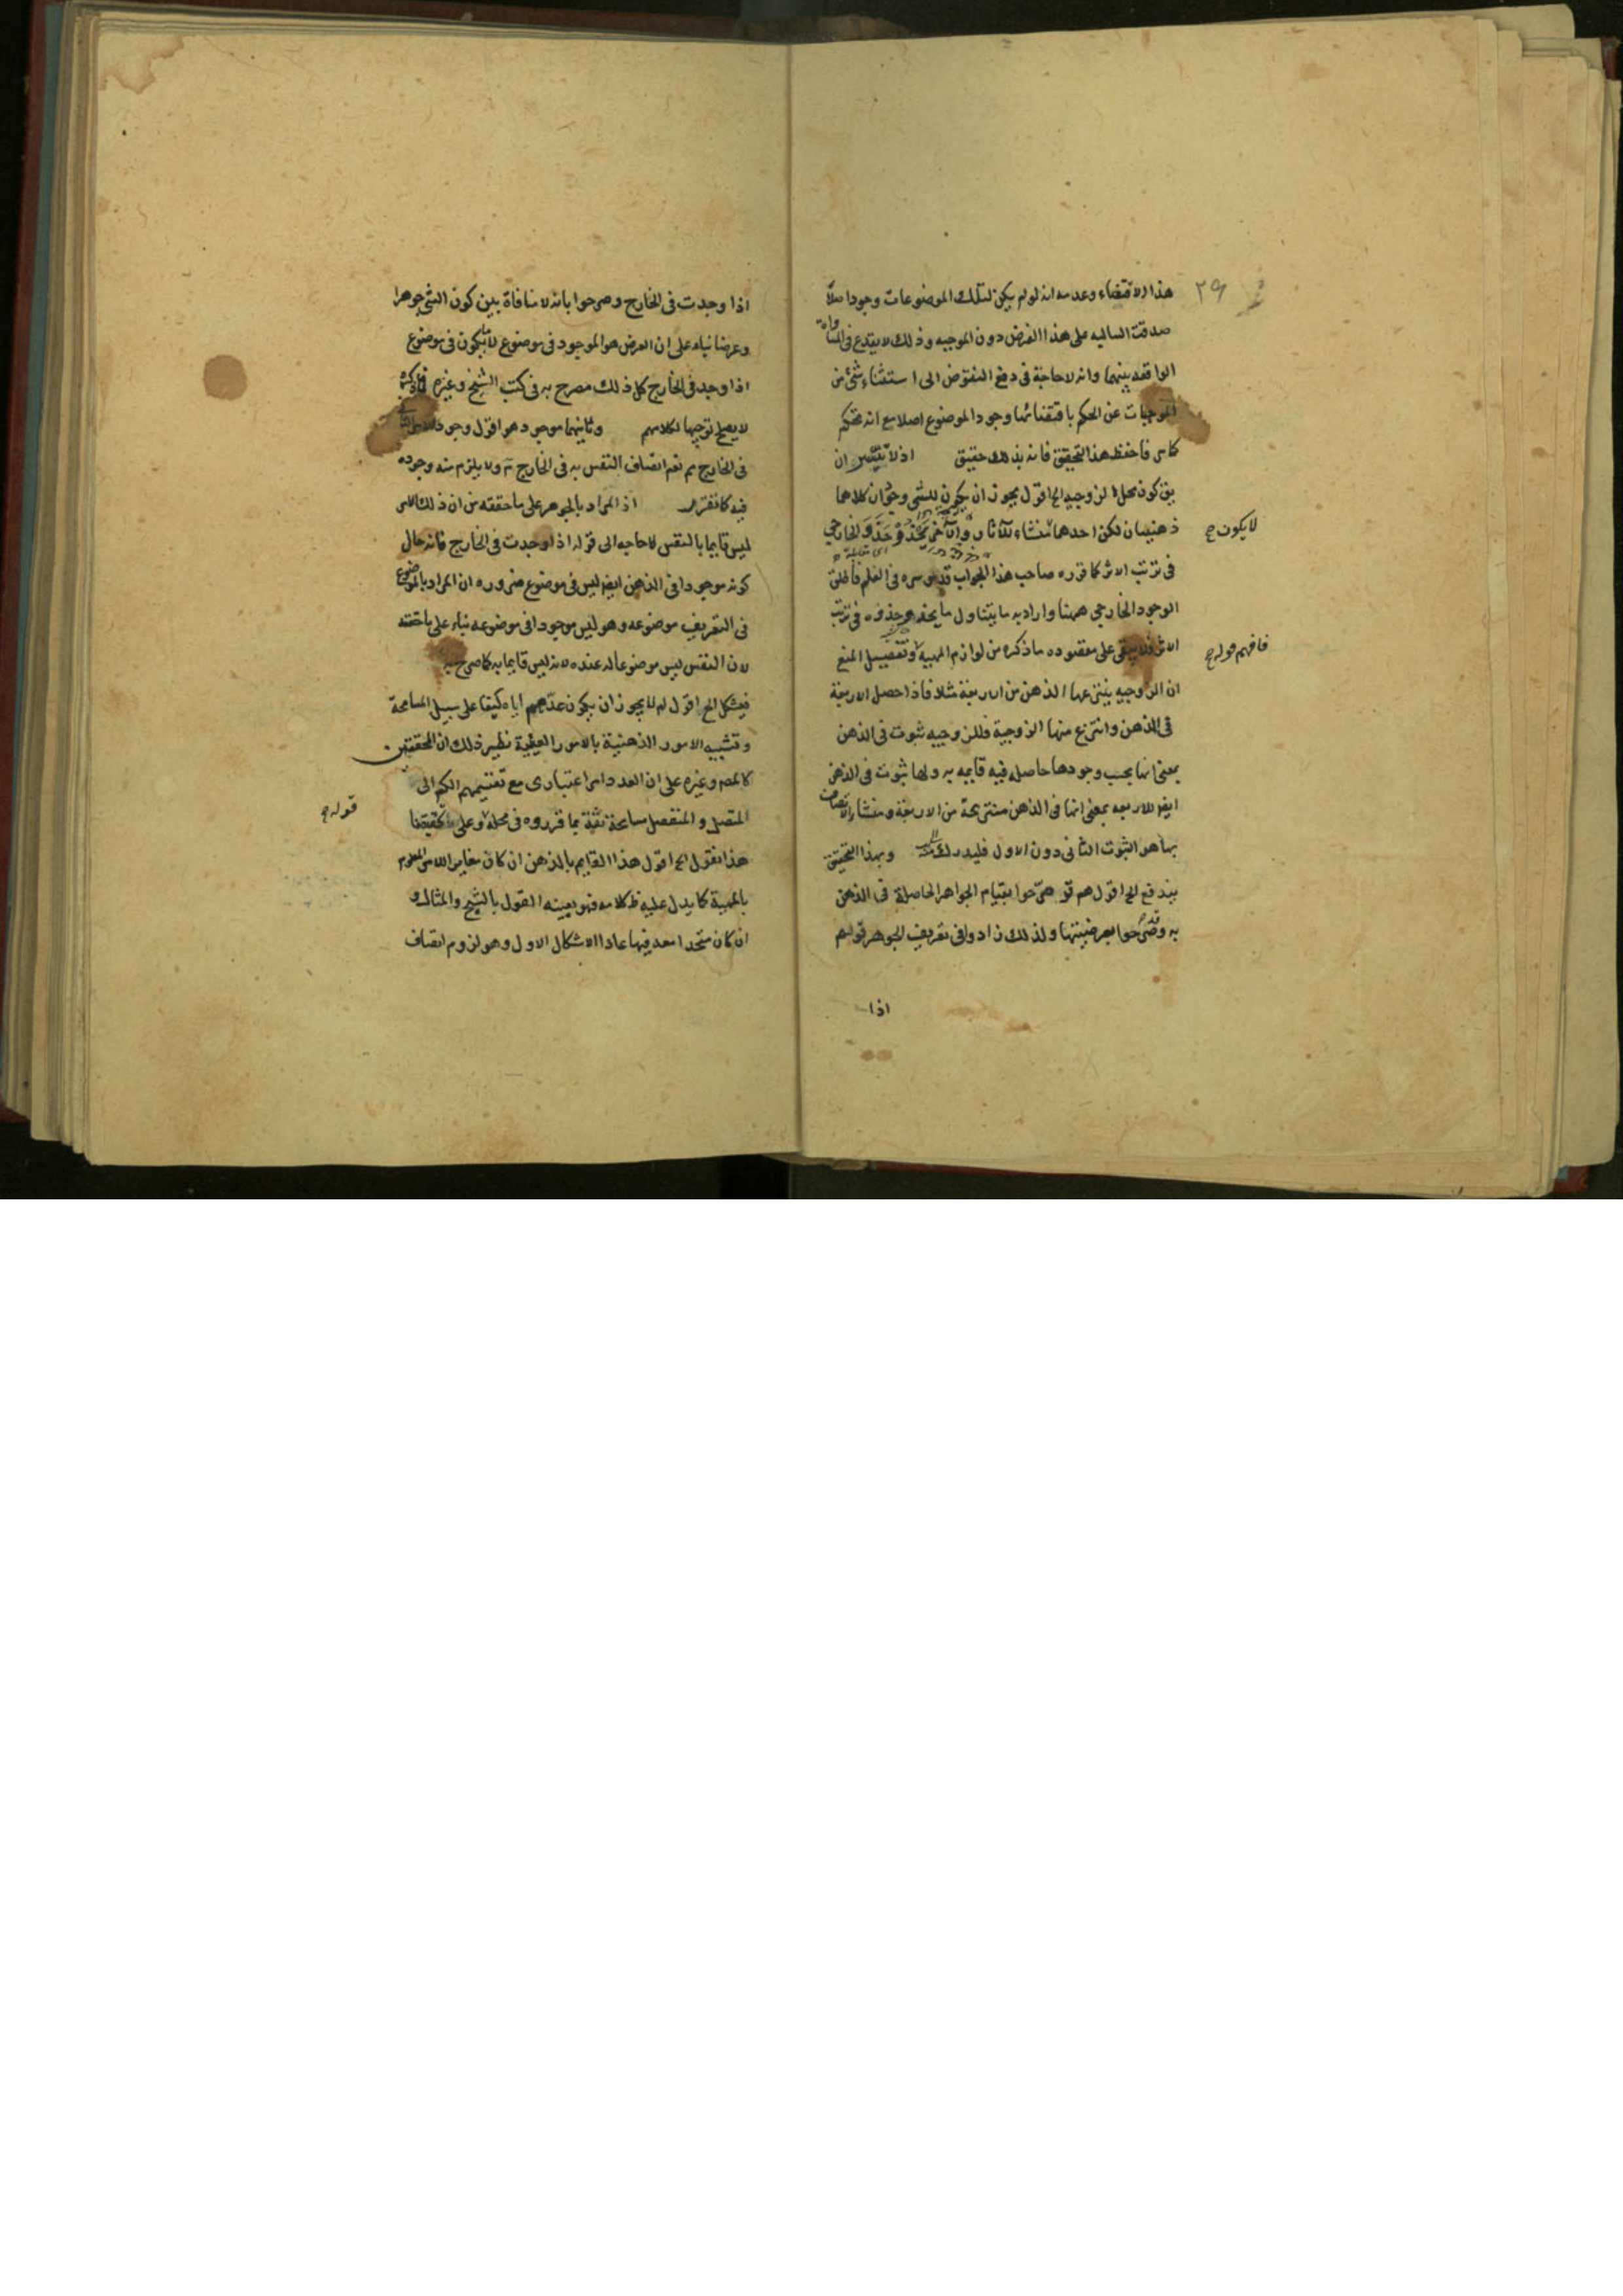 ٢٩
هذا الاقتضاء وعدمه انه لو لم يكن لتلك الموضوعات وجود اصلا
صدقت السالبه على هذا الفرض دون الموجبه وذلك لا يقدح فى المساواة
الواقعه بينهما وانه لا حاجة فى دفع النقوض الى استثناء شئ من
الموجبات عن الحكم باقتضائها وجود الموضوع اصلا مع انه تحكم
كما مر فاحفظ هذا التحقيق فانه بذلك حقيق اذ لا تيسر ان
يق كون محل الزوجيه الخ اقول يجوز ان يكون للشئ وجودان كلاهما
لا يكون ح
ذهنيان لكن احدهما منشاء للآثار والآخر يحذو حذو الخارجى
فى ترتب الاثر كما قرره صاحب هذا الجواب قدس سره فى العلم فاطلق
الوجود الخارجى ههنا واراد به ما يتناول ما يحذو حذوه فى ترتب
الاثر فلا يبقى على مقصوده ما ذكره من لوازم المهية وتفصيل المنع
فافهم قوله ح
ان الزوجيه ينتزعها الذهن من الاربعة مثلا فاذا حصل الاربعة
فى الذهن وانتزع منها الزوجية فللزوجيه ثبوت فى الذهن
بمعنى انها بحسب وجودها حاصله فيه قايمه به ولها ثبوت فى الذهن
ايضا للاربعه بمعنى انها فى الذهن منتزعة من الاربعة ومنشاء الاتصاف
بها هو الثبوت الثانى دون الاول فليدرك وبهذا التحقيق
يندفع الخ اقول هم قد صرحوا بقيام الجواهر الحاصلة فى الذهن
به وقد صرحوا بعرضيتها ولذلك زادوا فى تعريف الجوهر قولهم
اذا
اذا وجدت فى الخارج وصرحوا بانه لا منافاة بين كون الشئ جوهرا
وعرضا بناء على ان العرض هو الموجود فى موضوع لا ما يكون فى موضوع
اذا وجد فى الخارج كل ذلك مصرح به فى كتب الشيخ وغيره فما ذكره
لا يصلح توجيها لكلامهم وثانيهما موجود هو اقول وجود
فى الخارج مم نعم اتصاف النفس به فى الخارج ولا يلزم منه وجوده
فيه كما تقرر اذ المراد بالجوهر على ما حققه من ان ذلك الامر
ليس قايما بالنفس لا حاجه الى قوله اذا وجدت فى الخارج فانه حال
كونه موجودا فى الذهن ايضا ليس فى موضوع ضروره ان المراد بالموضوع
فى التعريف موضوعه وهو ليس موجودا فى موضوعه بناء على ما حققه
لان النفس ليس موضوعا له عنده لانه ليس قايما به كما صرح به
فيشكل الخ اقول لم لا يجوز ان يكون عدهم اياه كيفا على سبيل المسامحة
وتشبيه الامور الذهنية بالامور العينية نظير ذلك ان المحققين
كالمصـ وغيره على ان العدد امر اعتبارى مع تقسيمهم الكم الى
المتصل والمنفصل مسامحة ثقة بما قرروه فى محله وعلى تحقيقنا
قوله ح
هذا نقول الخ اقول هذا القايم بالذهن ان كان مغايرا للامر المعلوم
بالمهية كما يدل عليه ظ كلامه فهو بعينه القول بالشبح والمثال و
ان كان متحدا معه فيها عاد الاشكال الاول وهو لزوم اتصاف